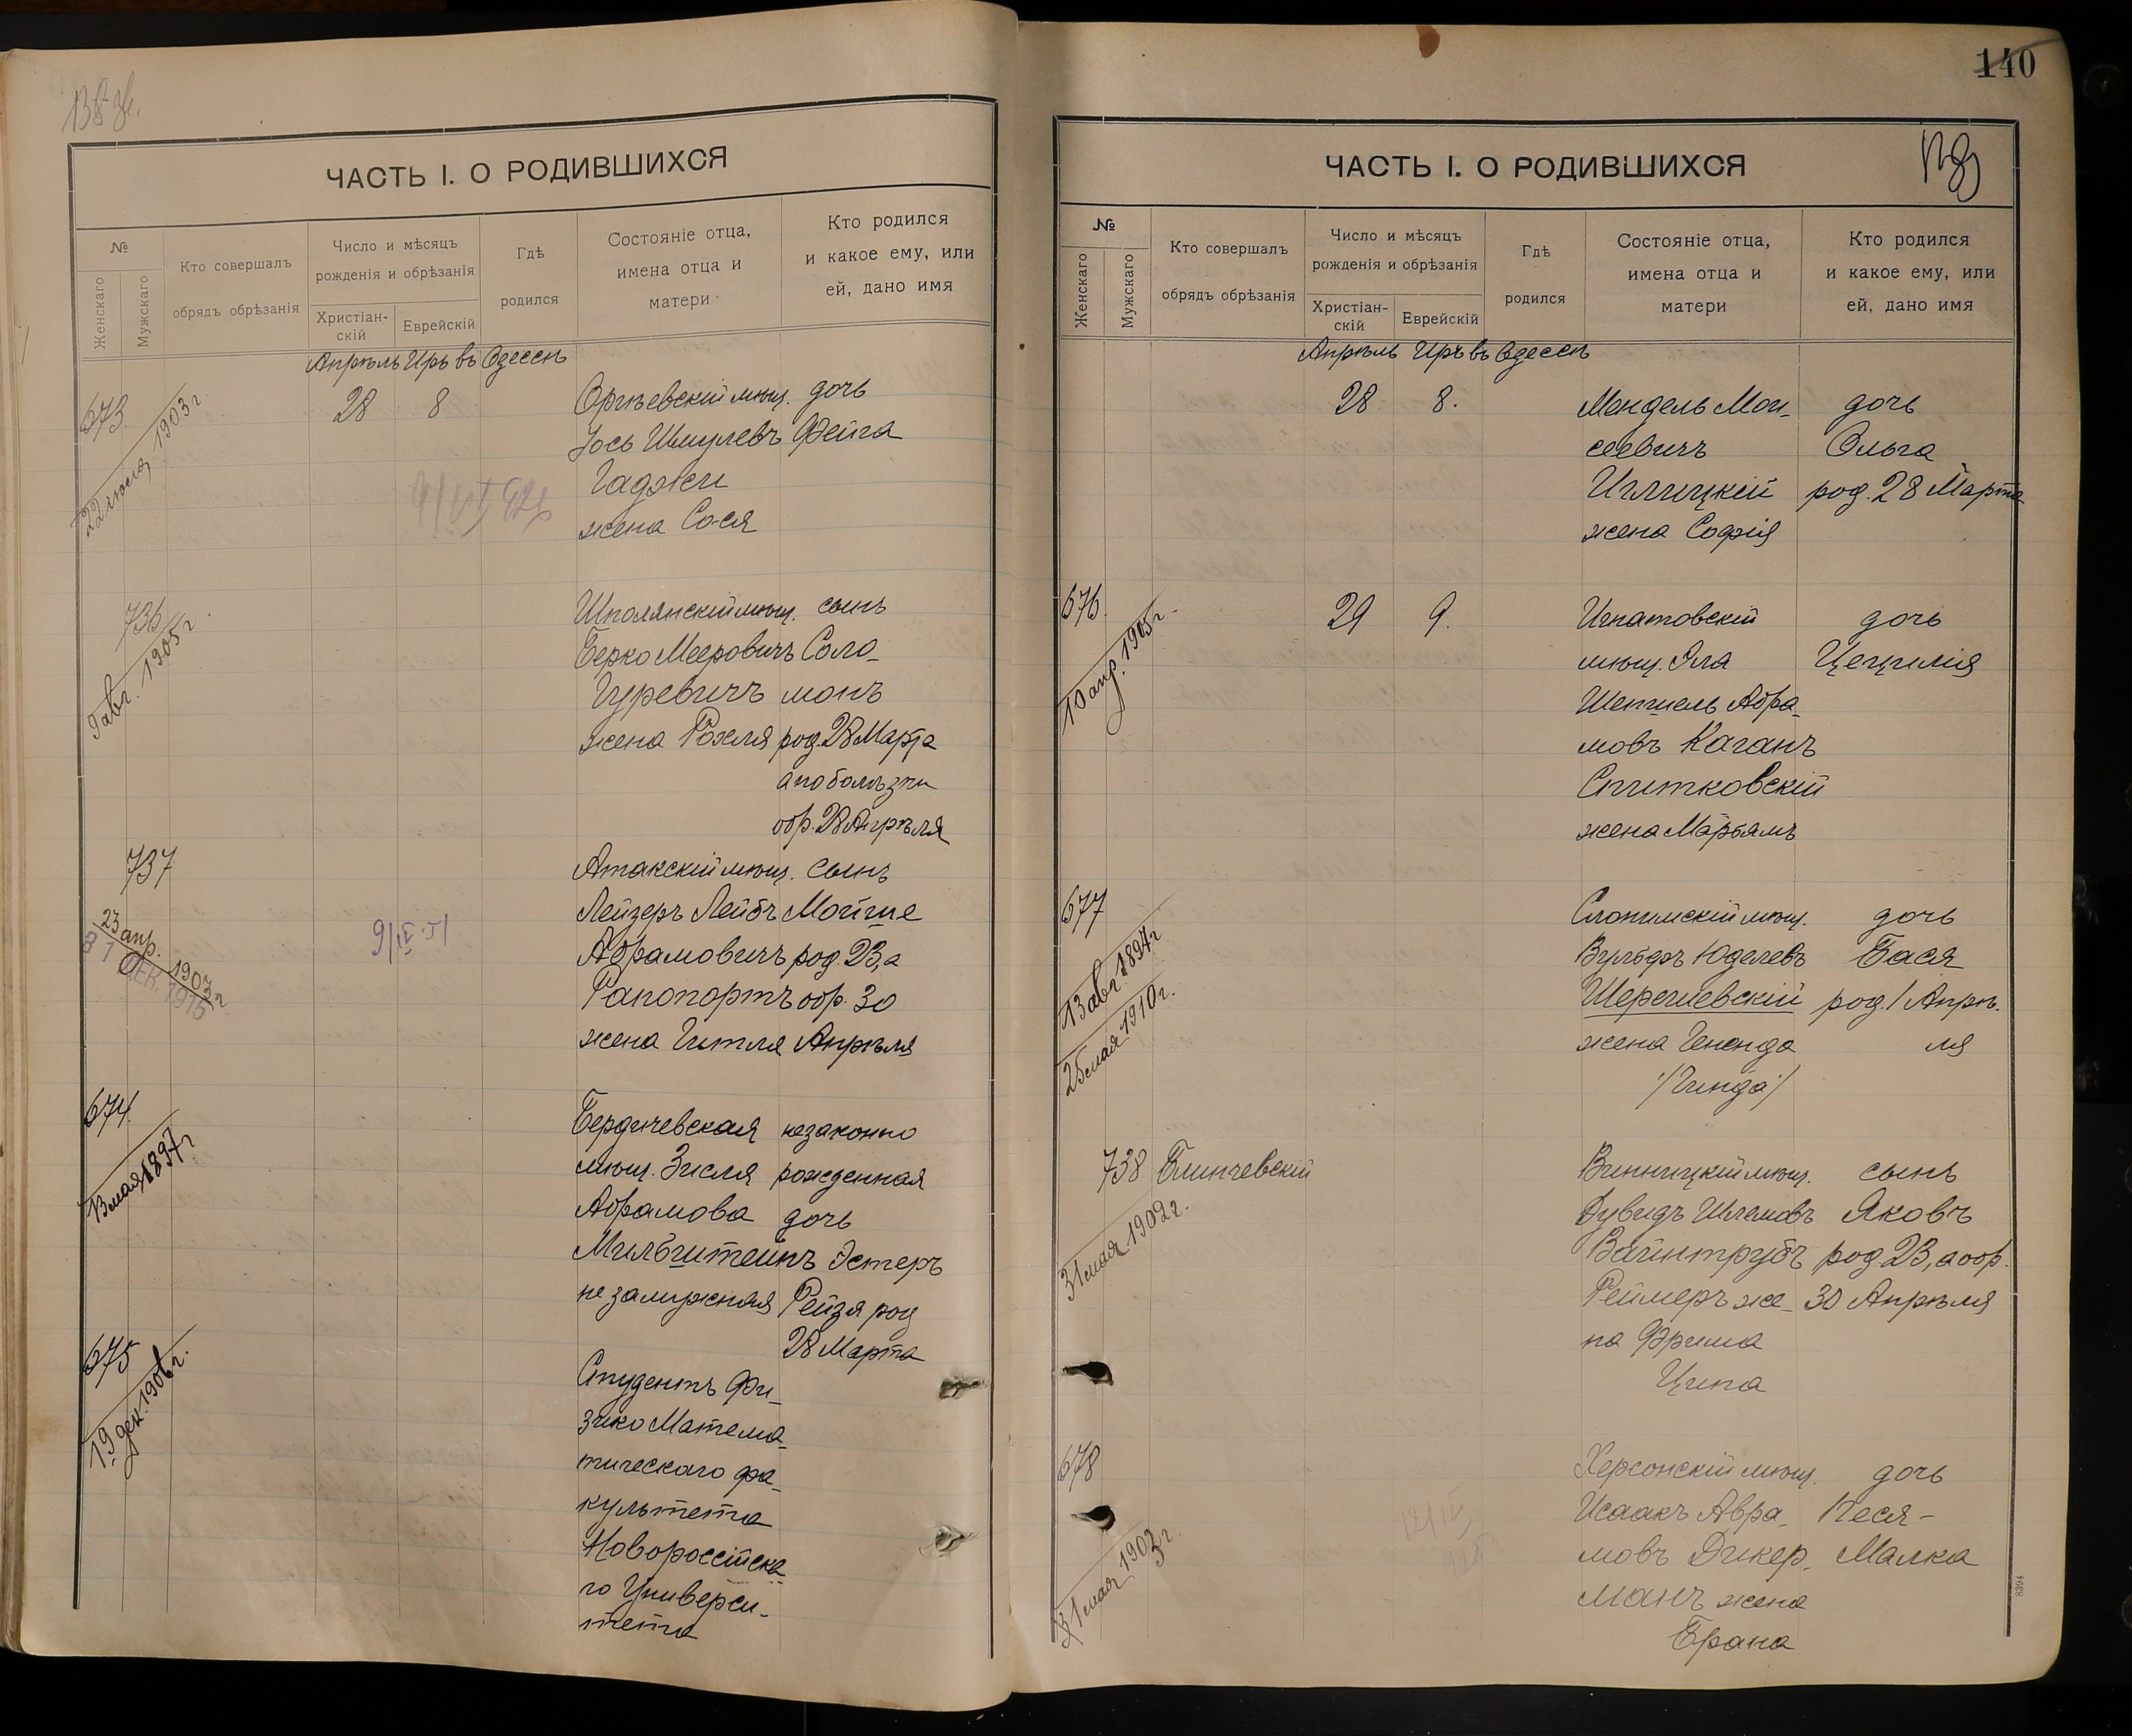 ЧАСТЬ I. О РОДИВШИХСЯ
№
Женскаго
Мужскаго
Кто совершалъ
обрядъ обрѣзанія
Число и мѣсяцъ
рожденія и обрѣзанія
Христіан-
скій
Еврейскій
Гдѣ
родился
Состояніе отца,
имена отца и
матери
Кто родился
и какое ему, или
ей, дано имя
Апрѣль Иръ въ Одессѣ
673.
22 июля 1903 г.
28 8
Оргѣевскій мѣщ.
Іось Шмулевъ
Гаджеи
жена Сося
дочь
Фейга
736
9 авг. 1905 г.
Шполянскій мѣщ.
Берко Мееровичъ
Гуревичъ
жена Рохля
сынъ
Соло-
монъ
род. 28 Марта
а по болѣзни
обр. 28 Апрѣля
737
23 апр. 1907 г.
Атакскій мѣщ.
Лейзеръ Лейбъ
Абрамовичъ
Рапопортъ
жена Гитля
сынъ
Мойше
род. 23, а
обр. 30
Апрѣля
674.
13 мая 1897 г.
Бердичевская
мѣщ. Зисля
Абрамова
Мильштейнъ
незамужняя
незаконно
рожденная
дочь
Эстеръ
Рейзя род
28 Марта
675
19 дек. 1906 г.
Студентъ Фи-
зико Матема-
тическаго фа-
культета
Новороссійска-
го Универси-
тета
140
ЧАСТЬ I. О РОДИВШИХСЯ
№
Женскаго
Мужскаго
Кто совершалъ
обрядъ обрѣзанія
Число и мѣсяцъ
рожденія и обрѣзанія
Христіан-
скій
Еврейскій
Гдѣ
родился
Состояніе отца,
имена отца и
матери
Кто родился
и какое ему, или
ей, дано имя
Апрѣль Иръ въ Одессѣ
28 8.
Мендель Мои-
сеевичъ
Иглицкій
жена Софія
дочь
Ольга
род. 28 Марта
676.
10 апр. 1905 г.
29 9.
Игнатовскій
мѣщ.
Шепшель Абра-
мовъ Каганъ
Спитковскій
жена Марьямъ
дочь
Цецилія
677
13 авг. 1897 г.
25 мая 1910 г.
Слонимскій мѣщ.
Вульфъ Юделевъ
Шерешевскій
жена Гененда
/Гинда/
дочь
Бася
род. 1 Апрѣ-
ля
738 Блинчевскій
31 мая 1902 г.
Винницкій мѣщ.
Дувидъ Шлемовъ
Вайнтрубъ
Реймеръ же-
на Фрима
Ципа
сынъ
Яковъ
род 23, а обр.
30 Апрѣля
678
31 мая 1903 г.
Херсонскій мѣщ.
Исаакъ Авра-
мовъ Дикер-
манъ жена
Брана
дочь
Песя-
Малка
8394